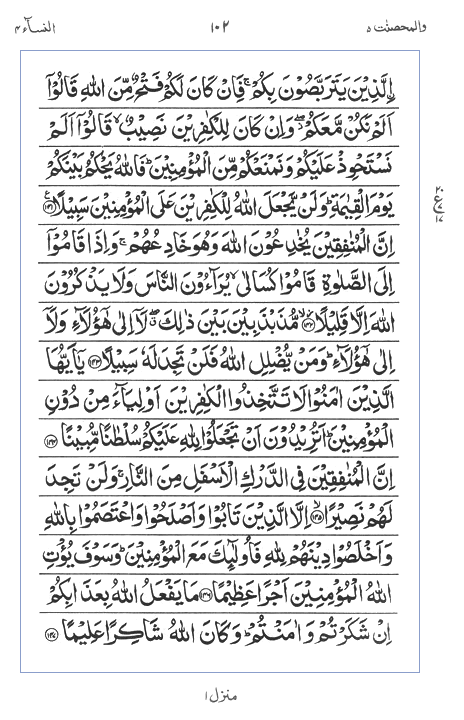 والمحصنٰت ۵ ۱۰۲ النسآء ۴
اۨلَّذِیْنَ یَتَرَبَّصُوْنَ بِكُمْ ۚ فَاِنْ كَانَ لَكُمْ فَتْحٌ مِّنَ اللّٰهِ قَالُوْۤا
اَلَمْ نَكُنْ مَّعَكُمْ ۖ وَ اِنْ كَانَ لِلْكٰفِرِیْنَ نَصِیْبٌ ۙ قَالُوْۤا اَلَمْ
نَسْتَحْوِذْ عَلَیْكُمْ وَ نَمْنَعْكُمْ مِّنَ الْمُؤْمِنِیْنَ ؕ فَاللّٰهُ یَحْكُمُ بَیْنَكُمْ
یَوْمَ الْقِیٰمَةِ ؕ وَ لَنْ یَّجْعَلَ اللّٰهُ لِلْكٰفِرِیْنَ عَلَى الْمُؤْمِنِیْنَ سَبِیْلًا ۝۱۴۱
اِنَّ الْمُنٰفِقِیْنَ یُخٰدِعُوْنَ اللّٰهَ وَ هُوَ خَادِعُهُمْ ۚ وَ اِذَا قَامُوْۤا
اِلَى الصَّلٰوةِ قَامُوْا كُسَالٰى ۙ یُرَآءُوْنَ النَّاسَ وَ لَا یَذْكُرُوْنَ
اللّٰهَ اِلَّا قَلِیْلًا ۝۱۴۲ مُّذَبْذَبِیْنَ بَیْنَ ذٰلِكَ ۖ لَاۤ اِلٰى هٰۤؤُلَآءِ وَ لَاۤ
اِلٰى هٰۤؤُلَآءِ ؕ وَ مَنْ یُّضْلِلِ اللّٰهُ فَلَنْ تَجِدَ لَهٗ سَبِیْلًا ۝۱۴۳ یٰۤاَیُّهَا
الَّذِیْنَ اٰمَنُوْا لَا تَتَّخِذُوا الْكٰفِرِیْنَ اَوْلِیَآءَ مِنْ دُوْنِ
الْمُؤْمِنِیْنَ ؕ اَتُرِیْدُوْنَ اَنْ تَجْعَلُوْا لِلّٰهِ عَلَیْكُمْ سُلْطٰنًا مُّبِیْنًا ۝۱۴۴
اِنَّ الْمُنٰفِقِیْنَ فِی الدَّرْكِ الْاَسْفَلِ مِنَ النَّارِ ۚ وَ لَنْ تَجِدَ
لَهُمْ نَصِیْرًا ۝۱۴۵ اِلَّا الَّذِیْنَ تَابُوْا وَ اَصْلَحُوْا وَ اعْتَصَمُوْا بِاللّٰهِ
وَ اَخْلَصُوْا دِیْنَهُمْ لِلّٰهِ فَاُولٰٓىِٕكَ مَعَ الْمُؤْمِنِیْنَ ؕ وَ سَوْفَ یُؤْتِ
اللّٰهُ الْمُؤْمِنِیْنَ اَجْرًا عَظِیْمًا ۝۱۴۶ مَا یَفْعَلُ اللّٰهُ بِعَذَابِكُمْ
اِنْ شَكَرْتُمْ وَ اٰمَنْتُمْ ؕ وَ كَانَ اللّٰهُ شَاكِرًا عَلِیْمًا ۝۱۴۷
منزل ۱